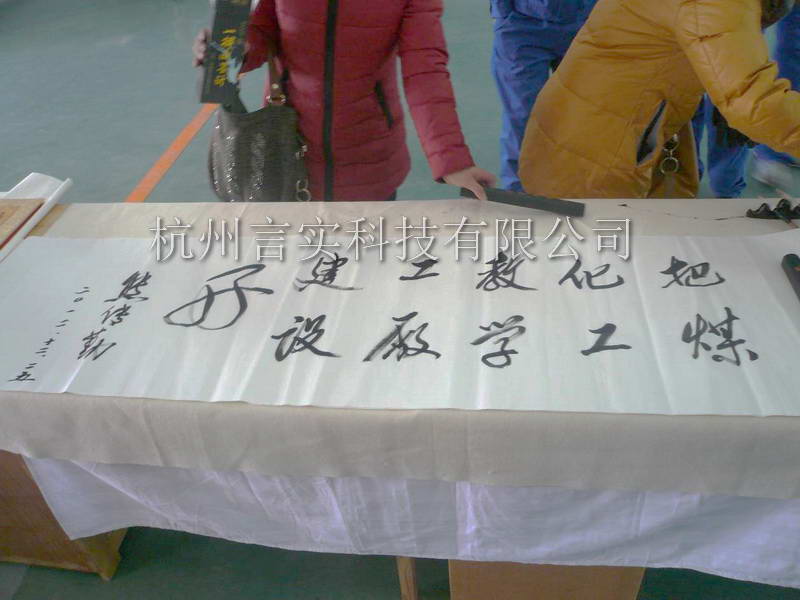 把煤
化工
教学
工廠
建设
好
熊传
二〇一二.十二.二五
杭州言实科技有限公司